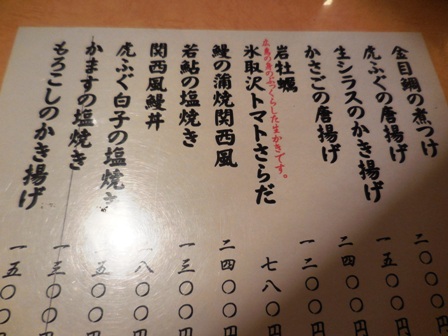 金目鯛の煮つけ 二〇〇〇円
虎ふぐの唐揚げ 一五〇〇円
生シラスのかき揚げ 二四〇〇円
かさごの唐揚げ 一二〇〇円
岩牡蠣
広島の身のぷっくらしたまかきです。
氷取沢トマトさらだ 七八〇円
鰻の蒲焼関西風 二四〇〇円
若鮎の塩焼き 一三〇〇円
関西風鰻丼 一八〇〇円
虎ふぐ白子の塩焼き 一五〇〇円
かますの塩焼き 一三〇〇円
もろこしのかき揚げ 一五〇〇円